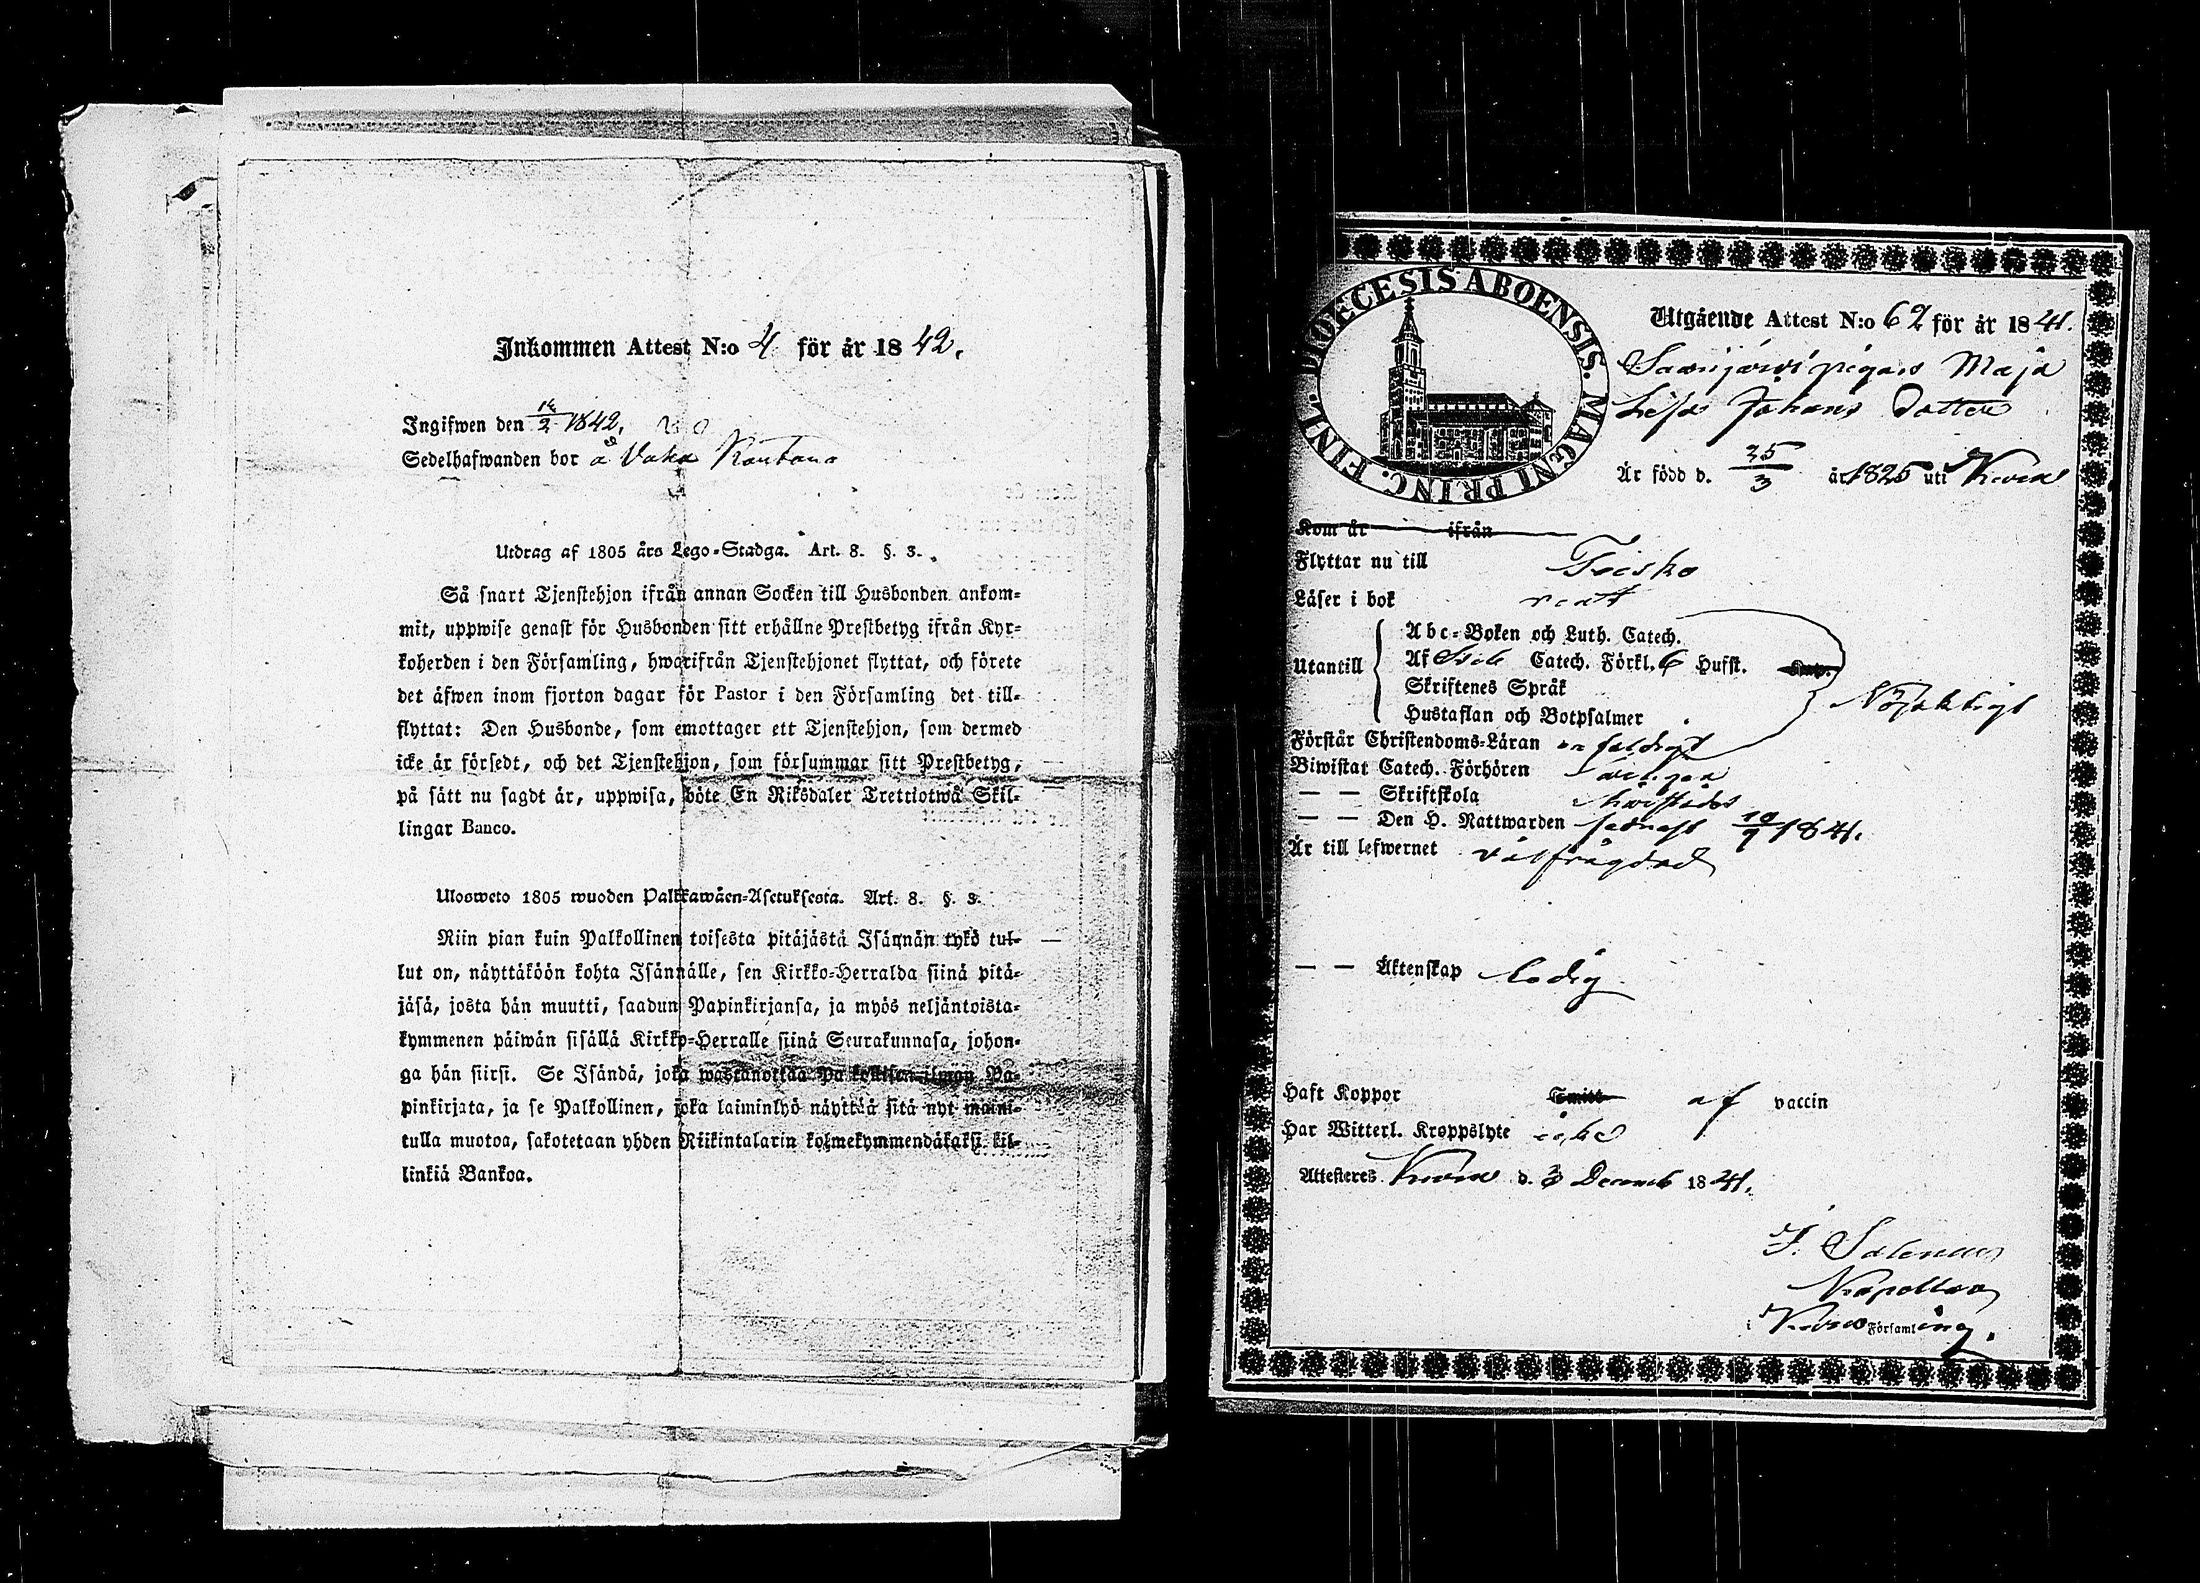 Inkommen Attest N:o 4 för år 1842.
Ingifwen den 14/2 1842.
Sedelhafwanden bor å Vaha Rantana
Utdrag af 1805 års Lego-Stadga. Art. 8. §. 3.
Så snart Tjenstehjon ifrån annan Socken till Husbonden ankom-
mit, uppwise genast för Husbonden sitt erhållne Prestbetyg ifrån Kyr-
koherden i den Församling, hwarifrån Tjenstehjonet flyttat, och förete
det äfwen inom fjorton dagar för Pastor i den Församling det till-
flyttat: Den Husbonde, som emottager ett Tjenstehjon, som dermed
icke är försedt, och det Tjenstehjon, som försummar sitt Prestbetyg,
på sätt nu sagdt är, uppwisa, böte En Riksdaler Trettiotwå Skil-
lingar Banco.
Ulosweto 1805 wuoden Palkkawäen-Asetuksesta. Art. 8. §. 3.
Niin pian kuin Palkollinen toisesta pitäjästä Isännän tykö tul-
lut on, näyttäköön kohta Isännälle, sen Kirkko-Herralda siinä pitä-
jäsä, josta hän muutti, saadun Papinkirjansa, ja myös neljäntoista-
kymmenen päiwän sisällä Kirkko-Herralle siinä Seurakunnasa, johon-
ga hän siirsi. Se Isändä, joka wastanottaa Palkollisen ilman Pa-
pinkirjata, ja se Palkollinen, joka laiminlyö näyttää sitä nyt maini-
tulla muotoa, sakotetaan yhden Riikintalarin kolmekymmendäkaksi kil-
linkiä Bankoa.
DIOECESIS ABOENSIS. MAGNI PRINC. FINL.
Utgående Attest N:o 62 för år 1841.
Saarijärvi pigan Maja
Lisa Johans Dotter
Är född d. 25/3 år 1825 uti Keuru
Kom år ifrån
Flyttar nu till Teisko
Läser i bok rent
Utantill
Abc-Boken och Luth. Catech.
Af Cateh. Förkl. 6 Hufst.
Skriftenes Språk
Hustaflan och Botpsalmer
Nöjaktigt
Förstår Christendoms-Läran enfaldigt
Biwistat Catech. Förhören årligen
— — Skriftskola
— — Den H. Nattwarden sednast 19/9 1841.
Är till lefwernet välfrägdad
— — Äktenskap ledig
Haft Koppor Smitt af vaccin
Har Witterl. Kroppslyte icke
Attesteres Keuru d. 3 Decemb 1841.
J. Salenius
Kapellan
i Keuru Församling.